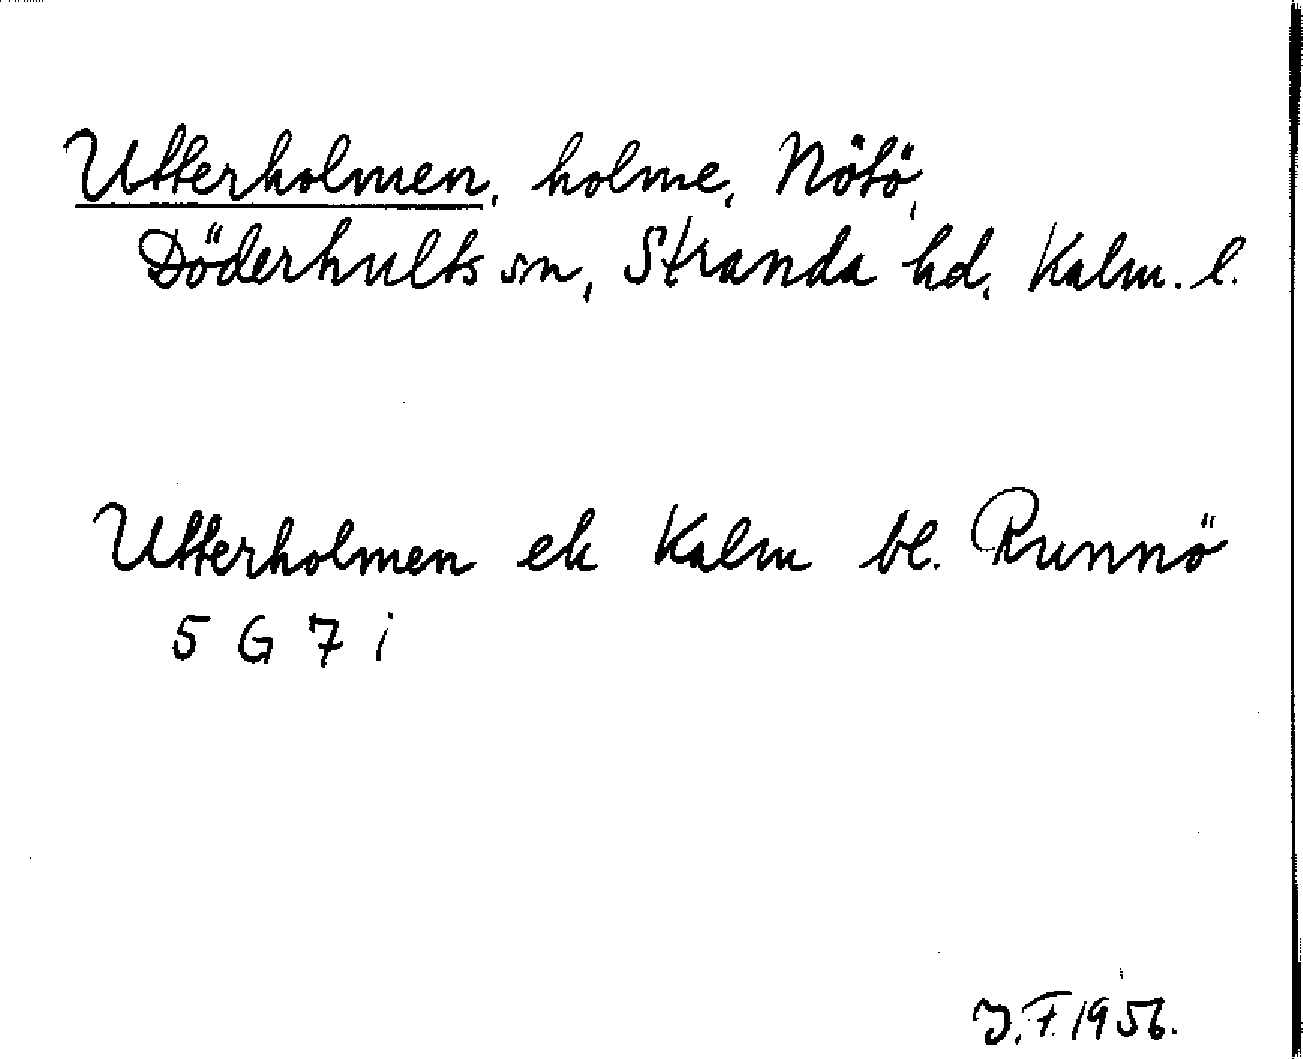 Utterholmen, holme, Nötö,
Döderhults sn, Stranda hd, Kalm. l.
Utterholmen ek Kalm bl. Runnö
5 G 7 i
J.F. 1956.